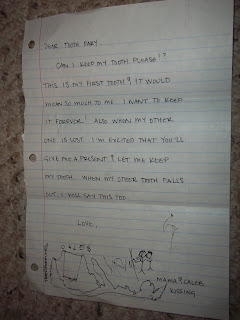 DEAR TOOTH FARY...
CAN I KEEP MY TOOTH PLEASE!?
THIS IS MY FIRST TEETH! IT WOULD
MEAN SO MUCH TO ME. I WANT TO KEEP
IT FOREVER! ALSO WHEN MY OTHER
ONE IS LOST I'M EXCITED THAT YOU'LL
GIVE ME A PRESENT! LET ME KEEP
MY TEETH. WHEN MY OTHER TEETH FALLS
OUT, I WILL SAY THIS TOO.
LOVE,
MAMA & CALEB
KISSING